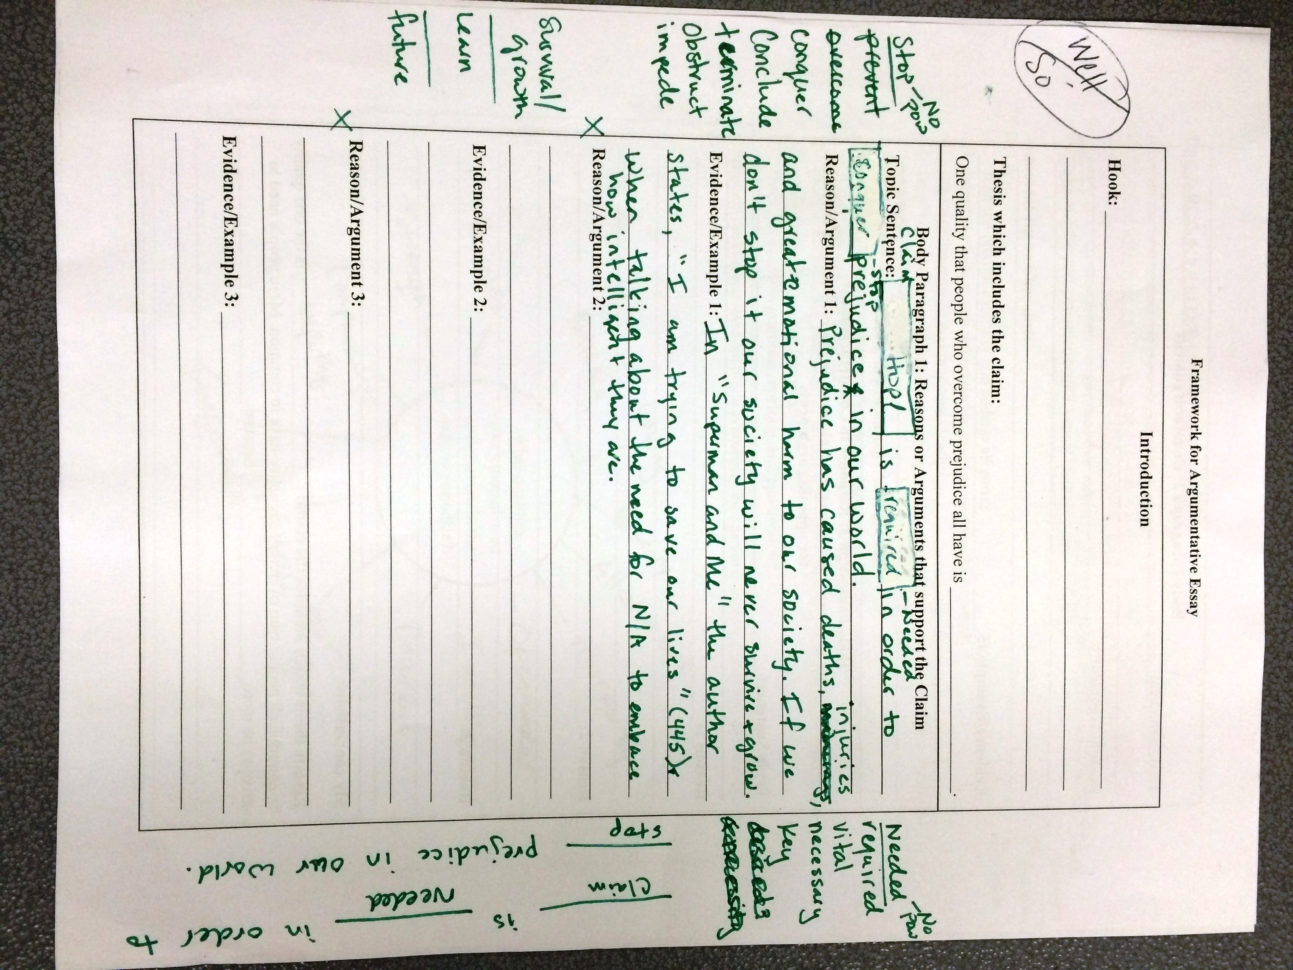 Well
So
Framework for Argumentative Essay
Introduction
Hook:
Thesis which includes the claim:
One quality that people who overcome prejudice all have is .
Body Paragraph 1: Reasons or Arguments that support the Claim
Claim Needed
Topic Sentence: Hope is required in order to
stop
conquer prejudice in our world.
injuries
Reason/Argument 1: Prejudice has caused deaths,
and great emotional harm to our society. If we
don't stop it our society will never survive + grow.
Evidence/Example 1: In "Superman and Me" the author
states, "I am trying to save our lives" (445)
when talking about the need for N/A to embrace
how intelligent they are.
X Reason/Argument 2:
Evidence/Example 2:
X Reason/Argument 3:
Evidence/Example 3:
Stop - No pow
prevent
overcome
conquer
Conclude
terminate
obstruct
impede
Survival/
growth
learn
future
Needed - No pow
required
vital
necessary
key
Claim is Needed in order to
stop prejudice in our world.